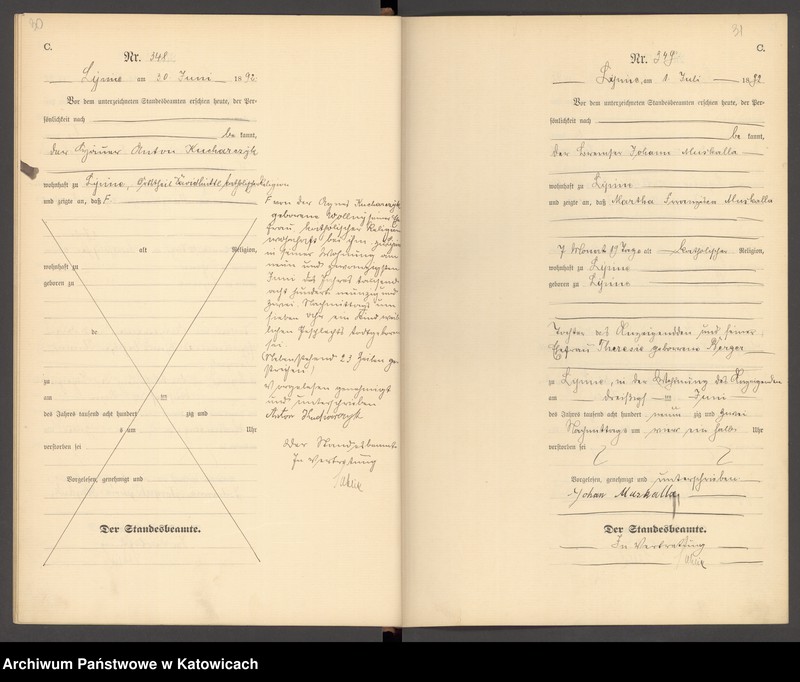 30
C.
Nr. 348
am 30 Juni 1892
Vor dem unterzeichneten Standesbeamten erschien heute, der Per-
sönlichkeit nach
be kannt,
der Häuer Anton Kucharczyk
wohnhaft zu
und zeigte an, daß F
alt Religion,
wohnhaft zu
geboren zu
de
zu
am ten
des Jahres tausend acht hundert zig und
s um Uhr
verstorben sei
Vorgelesen, genehmigt und
Der Standesbeamte.
F von der Agnes Kucharczyk
geborene Wollny seiner Ehe
frau katholischer Religion
wohnhaft bei ihm
in seiner Wohnung am
neun und zwanzigsten
Juni des Jahres tausend
acht hundert neunzig und
zwei Nachmittags um
sieben Uhr ein Kind weib
lichen Geschlechts todtgeboren
sei
(Nebenstehend 23 Zeilen ge
strichen)
Vorgelesen genehmigt
und unterschrieben
Anton Kucharczyk
Der Standesbeamte
In Vertretung
31
C.
Nr. 349
am 1 Juli 1892
Vor dem unterzeichneten Standesbeamten erschien heute, der Per-
sönlichkeit nach
be kannt,
der Bremser Johann Muskalla
wohnhaft zu
und zeigte an, daß Martha Franziska Muskalla
7 Monat 19 Tage alt katholischer Religion,
wohnhaft zu
geboren zu
Tochter des Anzeigenden und seiner
Ehefrau Theresie geborrene Berger
zu in der Wohnung des Anzeigenden
am dreißigsten Juni
des Jahres tausend acht hundert neun zig und zwei
Nachmittags um ein halb Uhr
verstorben sei
Vorgelesen, genehmigt und unterschrieben
Johan Muskalla
Der Standesbeamte.
In Vertretung
Archiwum Państwowe w Katowicach